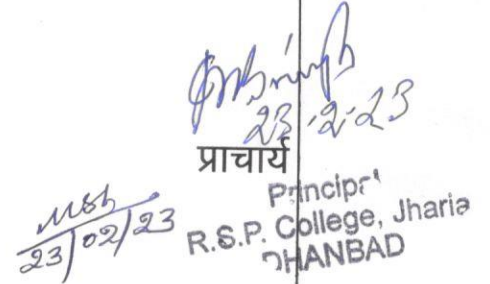 23-2-23
प्राचार्य
Principal
R.S.P. College, Jharia
DHANBAD
23/02/23